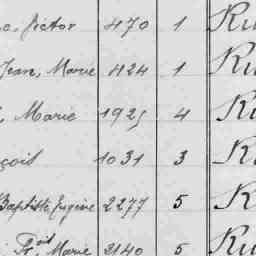 Victor 470 1 Ru
Jean, Marie 424 1 Ru
, Marie 1925 4 Ru
çois 1031 3 Ru
Baptiste Eugène 2277 5 Ru
Fr.ois Marie 2140 5 Ru